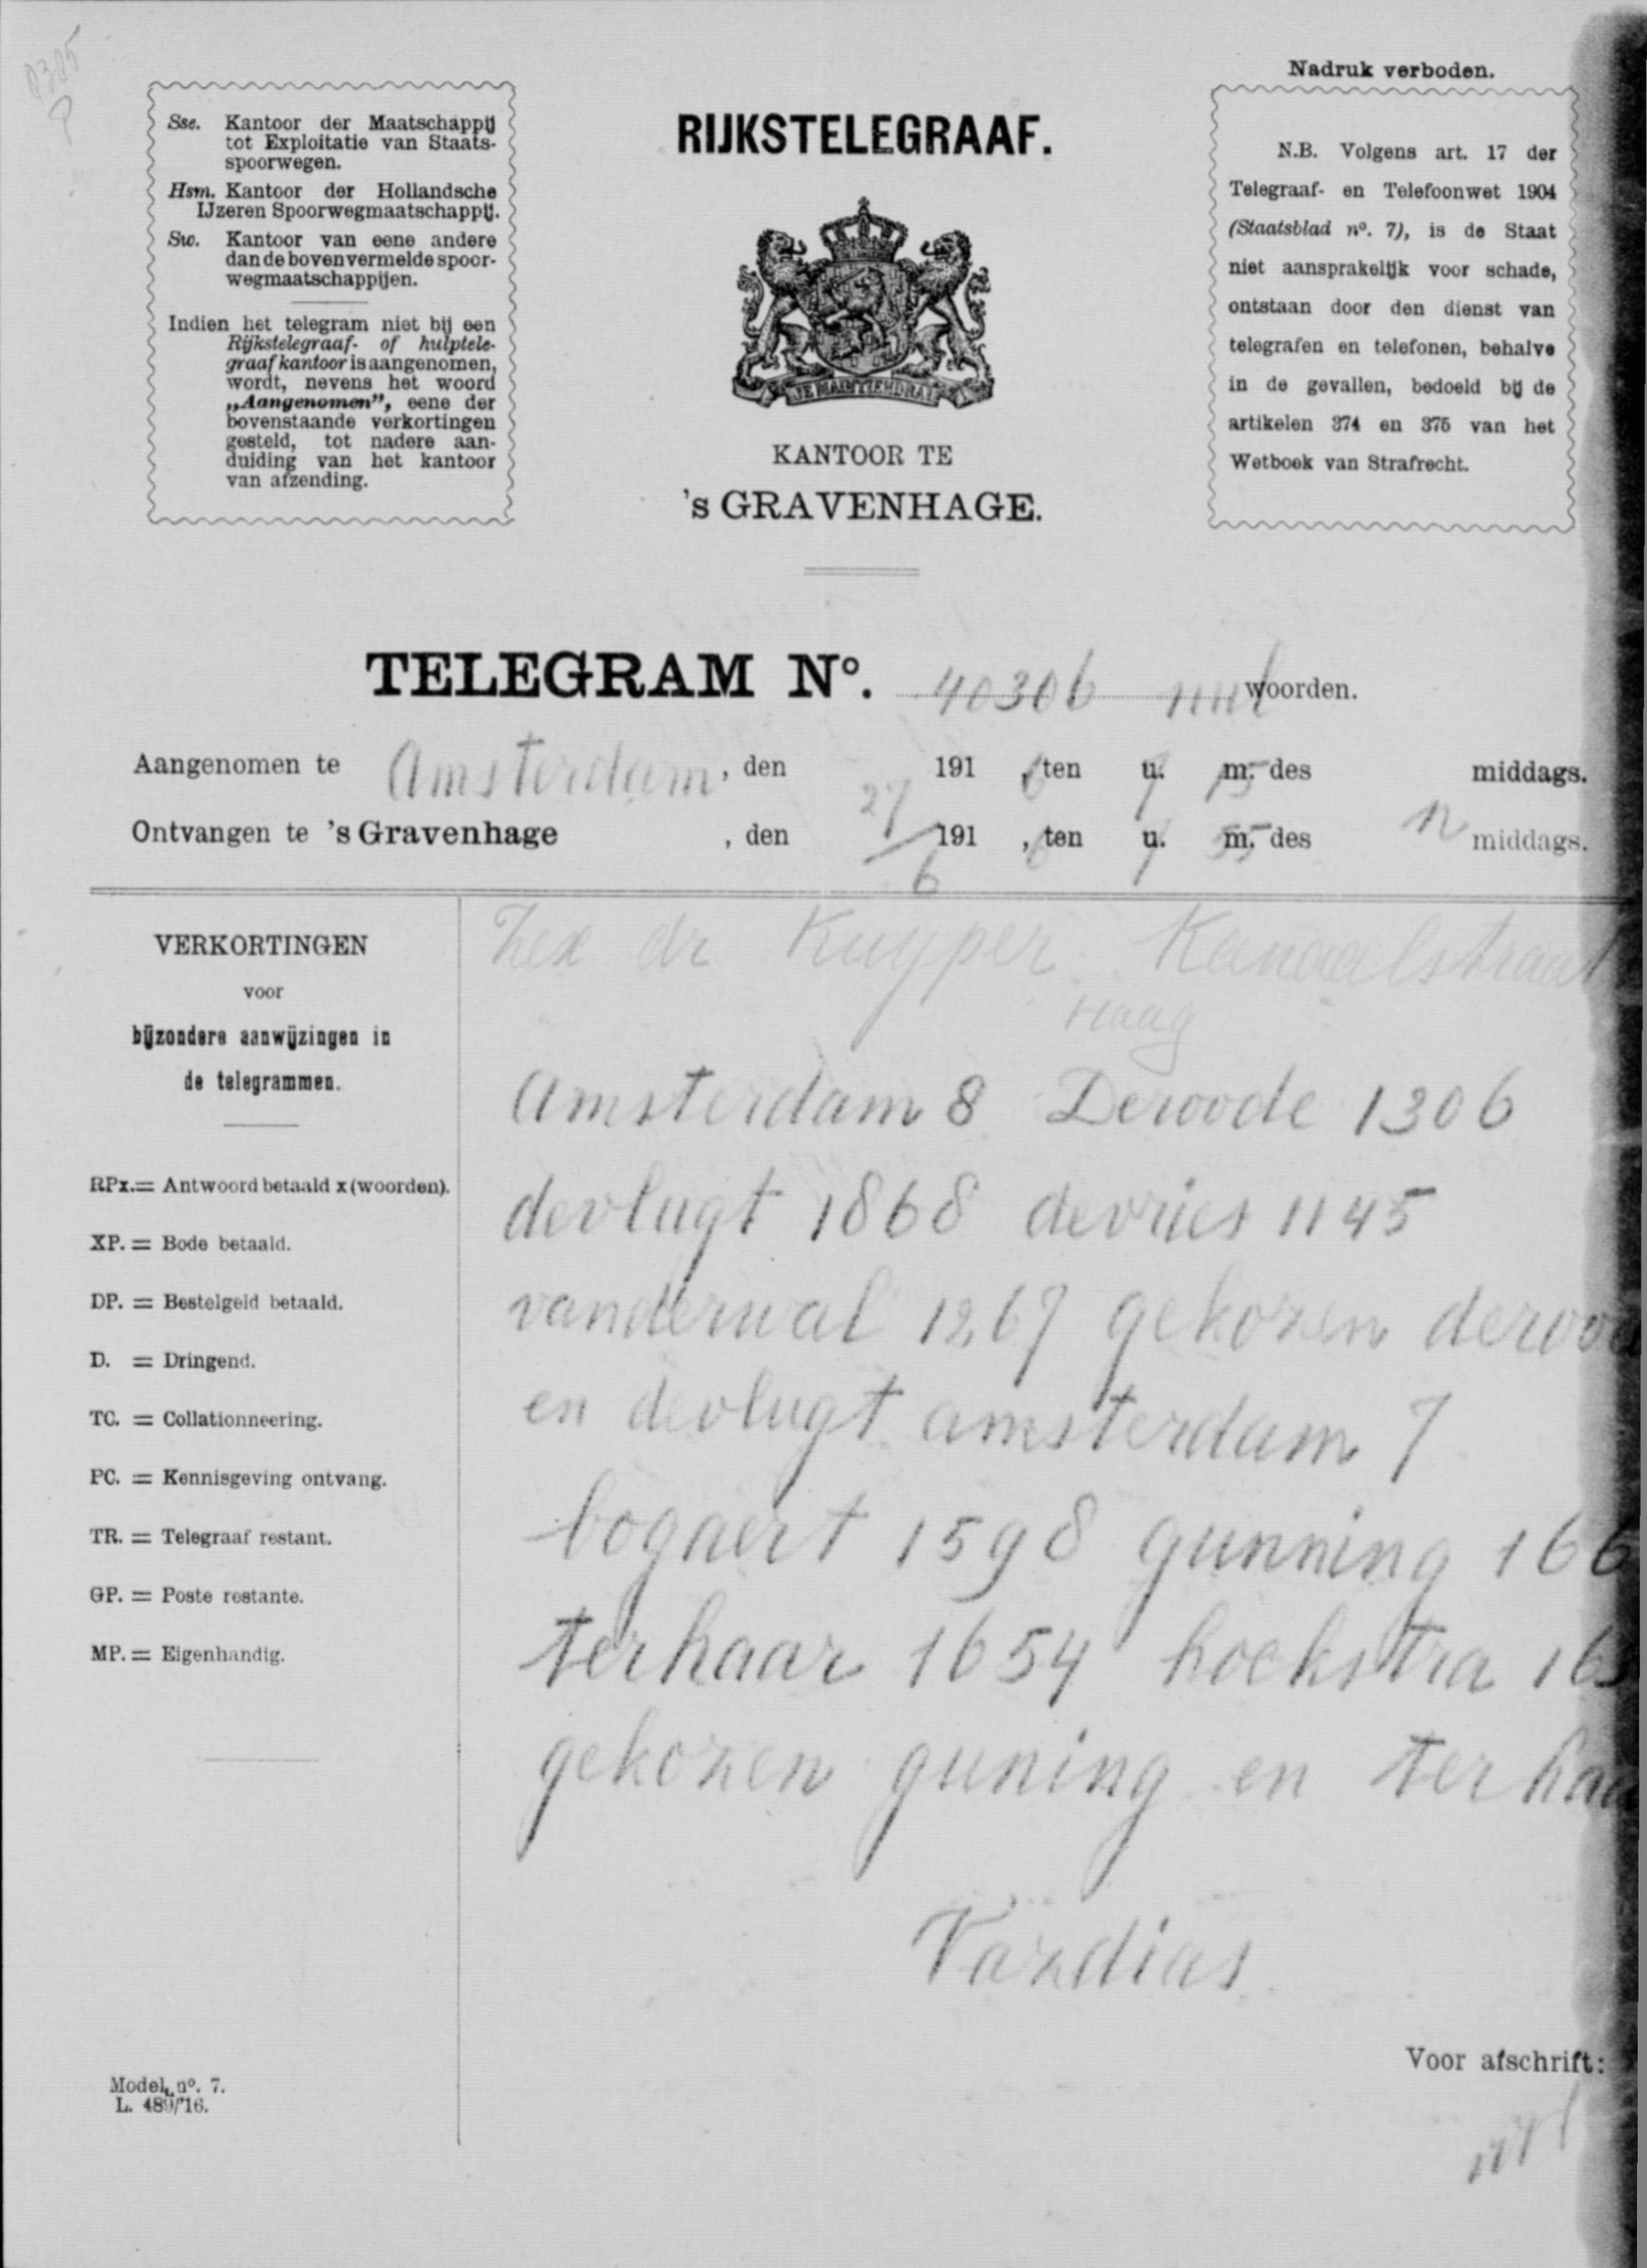 0385
P
Nadruk verboden.
Sse. Kantoor der Maatschappij
tot Exploitatie van Staats-
spoorwegen.
Hsm. Kantoor der Hollandsche
IJzeren Spoorwegmaatschappij.
Sw. Kantoor van eene andere
dan de bovenvermelde spoor-
wegmaatschappijen.
Indien het telegram niet bij een
Rijkstelegraaf- of hulptele-
graafkantoor is aangenomen,
wordt, nevens het woord
„Aangenomen”, eene der
bovenstaande verkortingen
gesteld, tot nadere aan-
duiding van het kantoor
van afzending.
RIJKSTELEGRAAF.
JE MAINTIENDRAI
KANTOOR TE
's GRAVENHAGE.
N.B. Volgens art. 17 der
Telegraaf- en Telefoonwet 1904
(Staatsblad no. 7), is de Staat
niet aansprakelijk voor schade,
ontstaan door den dienst van
telegrafen en telefonen, behalve
in de gevallen, bedoeld bij de
artikelen 374 en 375 van het
Wetboek van Strafrecht.
TELEGRAM No. 40306 woorden.
Aangenomen te Amsterdam, den 191 , ten 7 u. 15 m. des middags.
Ontvangen te 's Gravenhage , den 27/6 191 , ten 7 u. 55 m. des n middags.
VERKORTINGEN
voor
bijzondere aanwijzingen in
de telegrammen.
RPx. = Antwoord betaald x (woorden).
XP. = Bode betaald.
DP. = Bestelgeld betaald.
D. = Dringend.
TC. = Collationneering.
PC. = Kennisgeving ontvang.
TR. = Telegraaf restant.
GP. = Poste restante.
MP. = Eigenhandig.
Zex dr Kuyper Kanaalstraat
Haag
Amsterdam 8 Deroode 1306
devlugt 1868 devries 1145
vanderwal 1267 gekozen deroo
en devlugt amsterdam 7
bogaert 1598 gunning 166
terhaar 1654 hoekstra 16
gekozen guning en ter haa
Vazdias
Voor afschrift:
Model no. 7.
L. 489/'16.